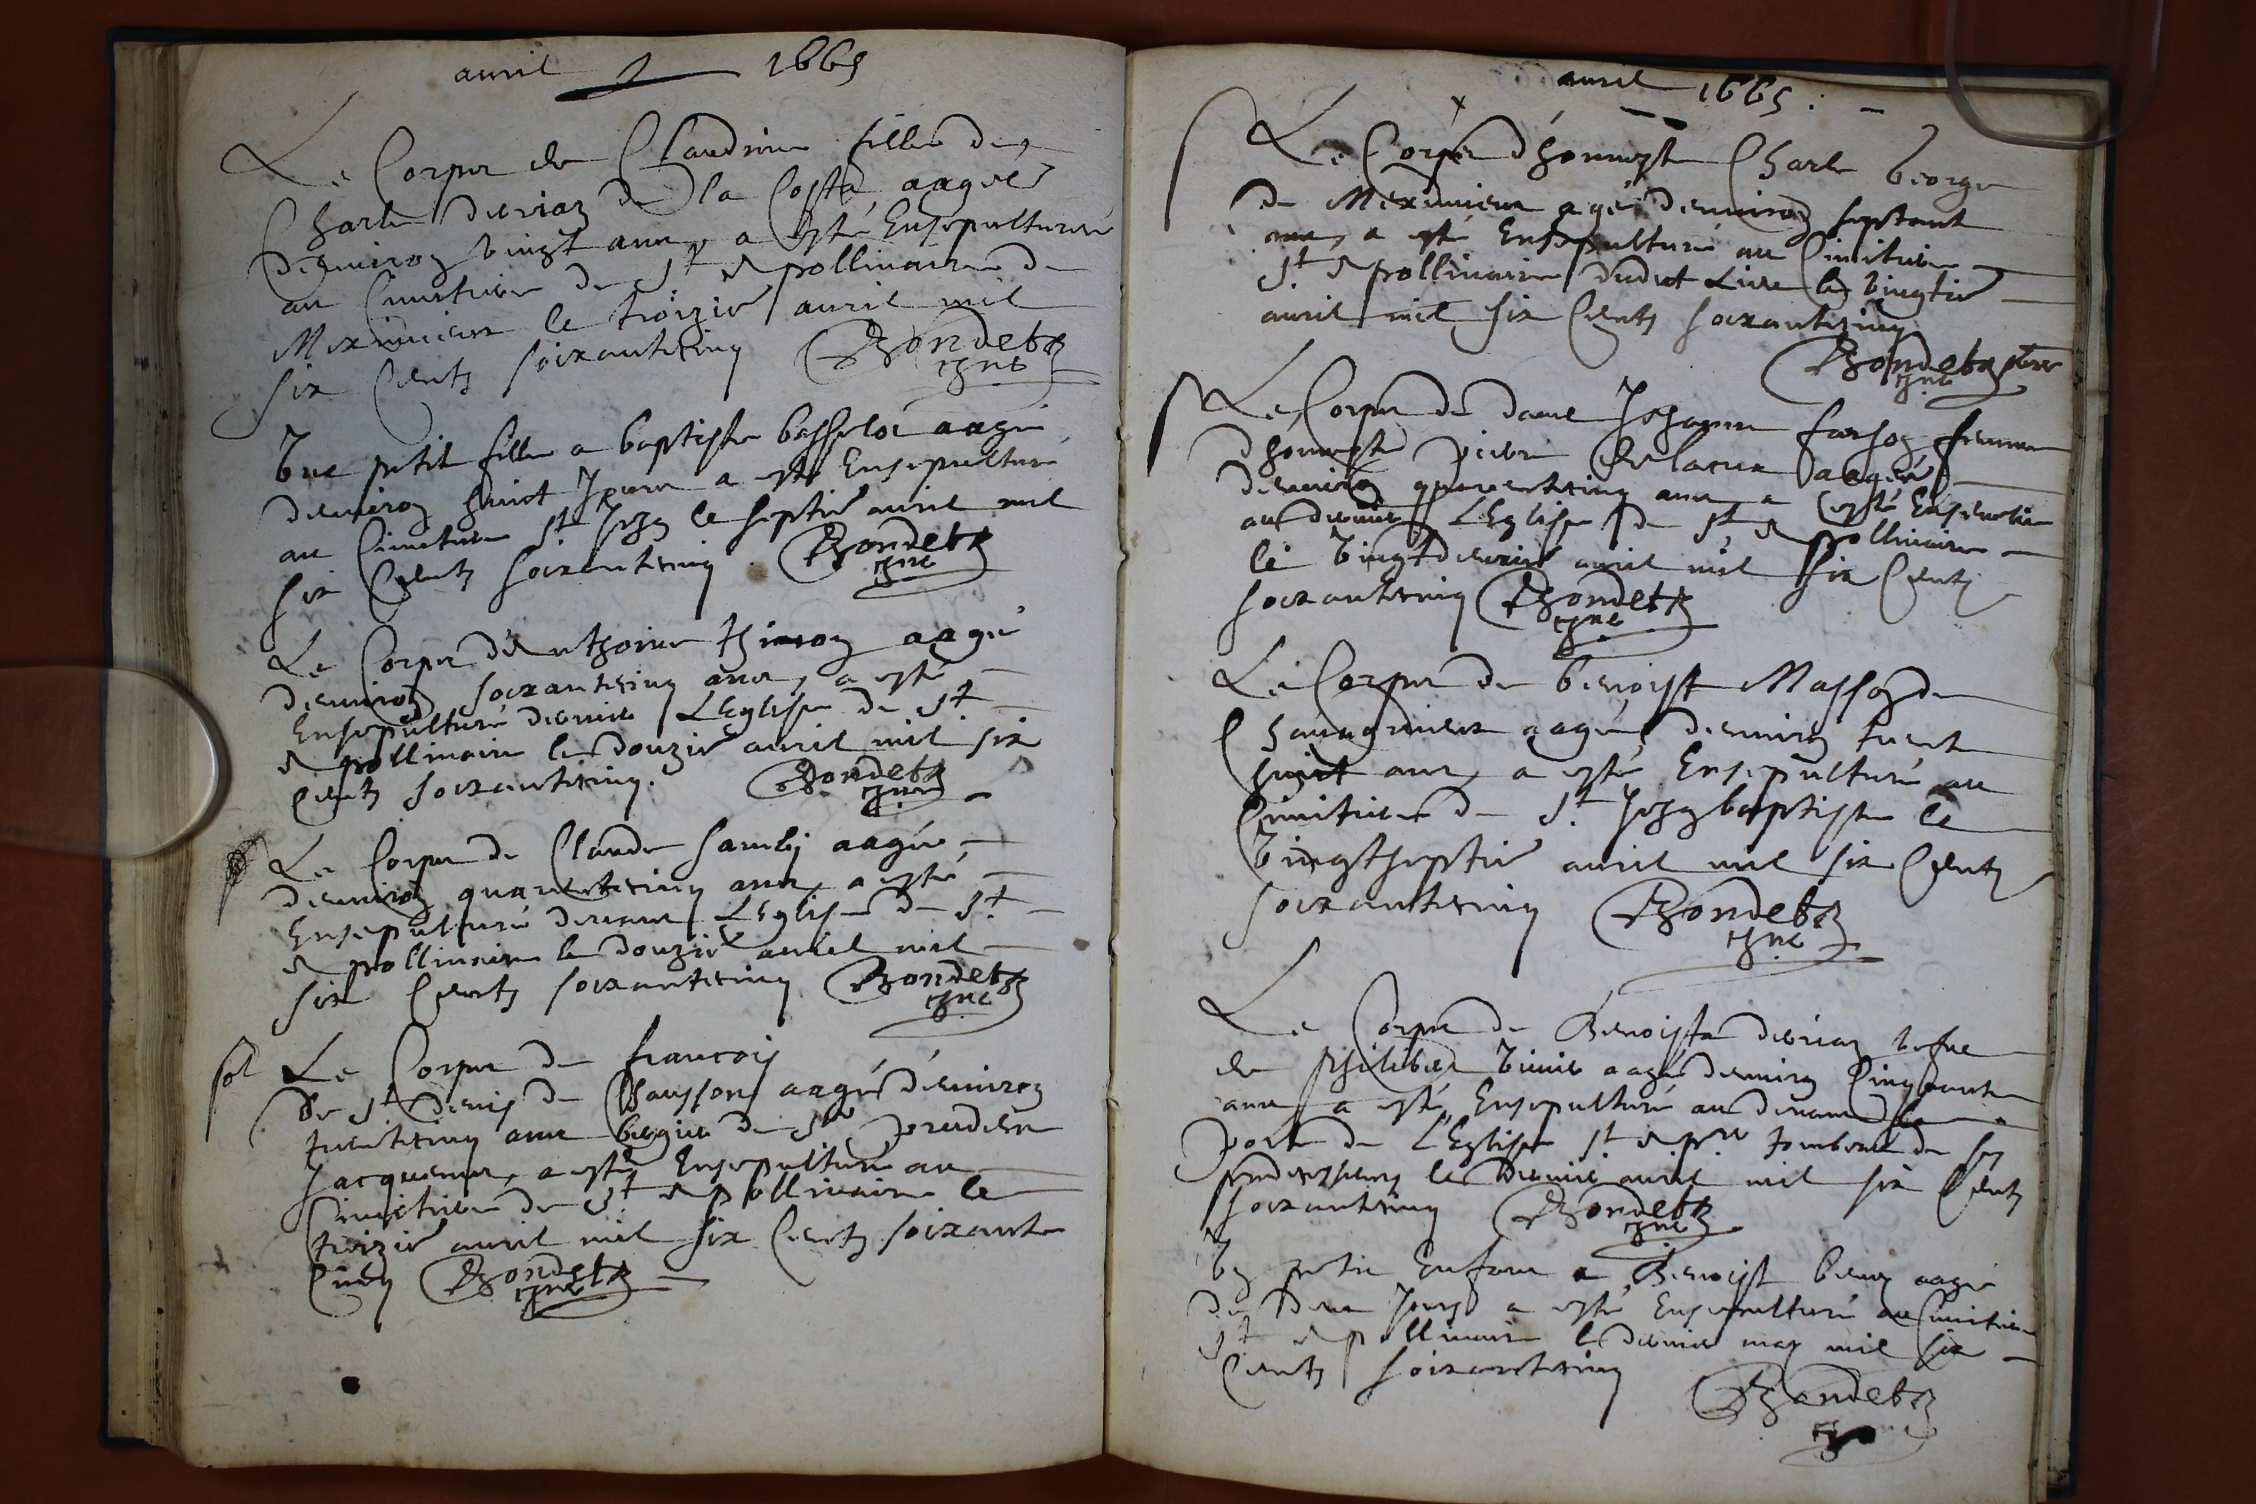 avril 1665
Le Corps de Claudine fille de
Charle derriaz de la Costa aagée
denviron vingt ans, a esté Ensepulturée
au Cimetiere de St Apollinaire de
Meximieux le troizie avril mil
six Cents soixantecinq Rhondetz
Une petit fille a baptiste aagé
denviron huict Jours a esté Ensepulturé
au Cimetiere St Jean le septie avril mil
six Cents soixantecinq Rhondetz
Le Corps d'Anthoine aagé
denviron soixantecinq ans, a esté
Ensepulturé L'Eglise de St
Apollinaire le douzie avril mil six
Cents soixantecinq. Rhondetz
Le Corps de Claude aagé
denviron quarentecinq ans, a esté
Ensepulturé devant L'Eglise de St
Apollinaire le douzie avril mil
six Cents soixantecinq Rhondetz
Le Corps de francois
De St denis de Chausson aagé denviron
trentecinq ans de
Jacquemer, a esté Ensepulturé au
Cimetiere de St Apollinaire le
treizie avril mil six Cents soixante
Cinq Rhondetz
avril 1665
Le Corps d'honneste Charle George
de Meximieux agé denviron septante
ans, a esté Ensepulturé au Cimitiere
St Apollinaire dudict Lieu le vingtie
avril mil six Cents soixantecinq
Rhondetz
Le Corps de dame Jehanne femme
dhonneste aagée
denviron quarentecinq ans, a esté
L'Eglise de St Apollinaire
le vingtdeuxie avril mil six Cents
soixantecinq Rhondetz
Le Corps de benoist Masson de
Chavagnieux aagé denviron trent
huict ans, a esté Ensepulturé au
Cimitiere de St Jean baptiste le
vingtseptie avril mil six Cents
soixantecinq Rhondetz
Le Corps de Benoista derriaz vefve
de philibert aagé denviron Cinquante
ans a esté Ensepulturé au devant la
porte de L'Eglise St tombeau de ses
predecesseurs le dernie avril mil six Cents
soixantecinq Rhondetz
Un petit Enfant a Benoist aagé
de deux Jours a esté Ensepulturé au Cimitiere
St Apollinaire le dernier may mil six
Cents soixantecinq
Rhondetz